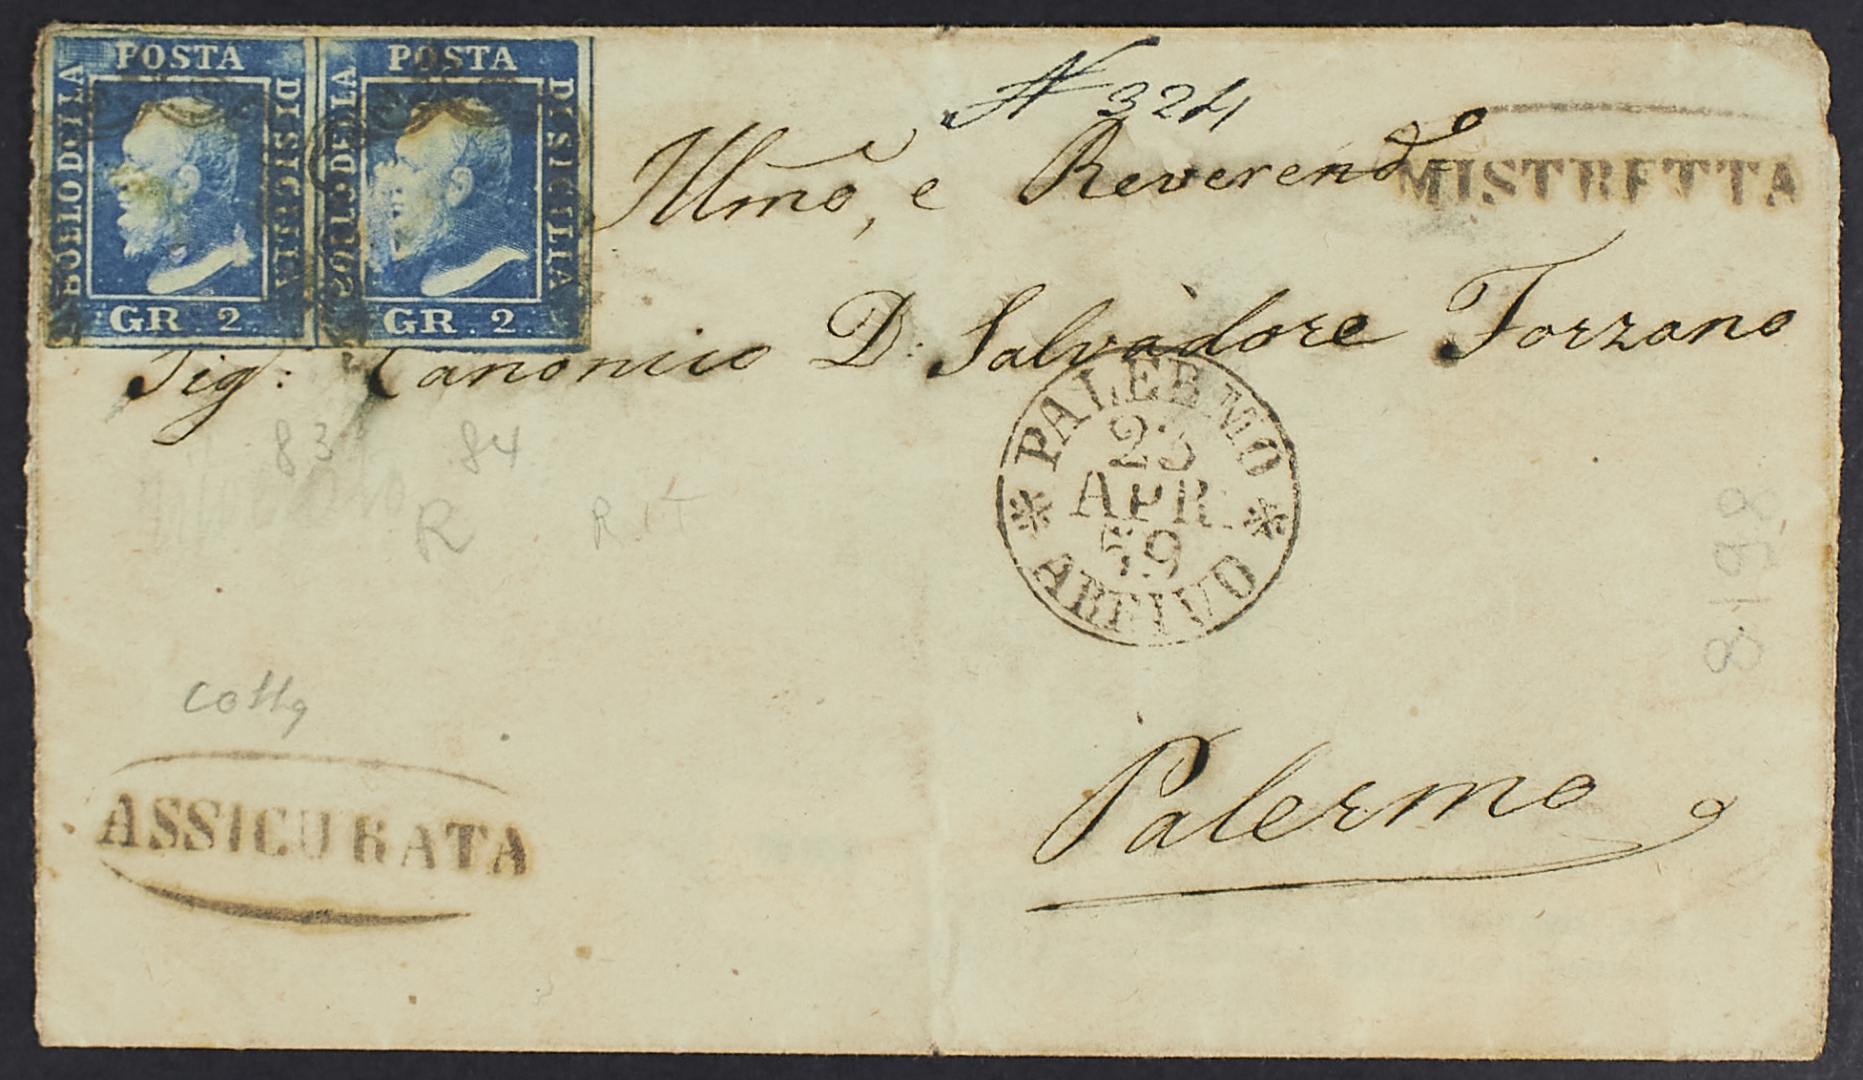 POSTA
BOLLO DELLA
DI SICILIA
GR. 2.
POSTA
BOLLO DELLA
DI SICILIA
GR. 2.
N 324
Ill͞mo, e Reverend͞o
MISTRETTA
Sig.: Canonico D: Salvadore Forzano
PALERMO
23
APR.
59
ARRIVO
83 84
R R.IT
8198
ASSICURATA
Palermo